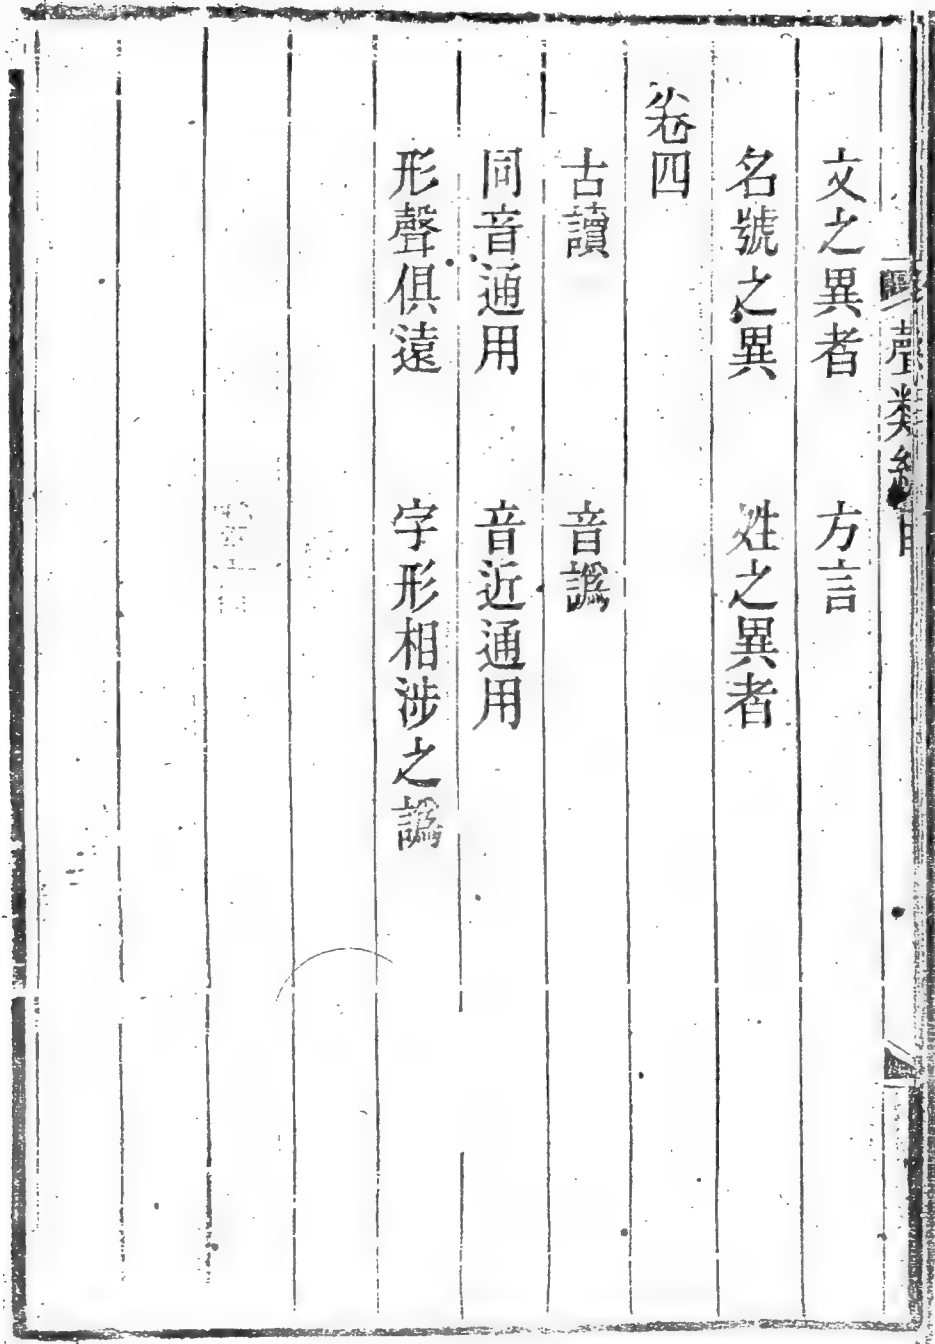 文之異者　方言
名號之異　姓之異者
卷四
古讀　音譌
同音通用　音近通用
形聲俱遠　字形相涉之譌
聲類